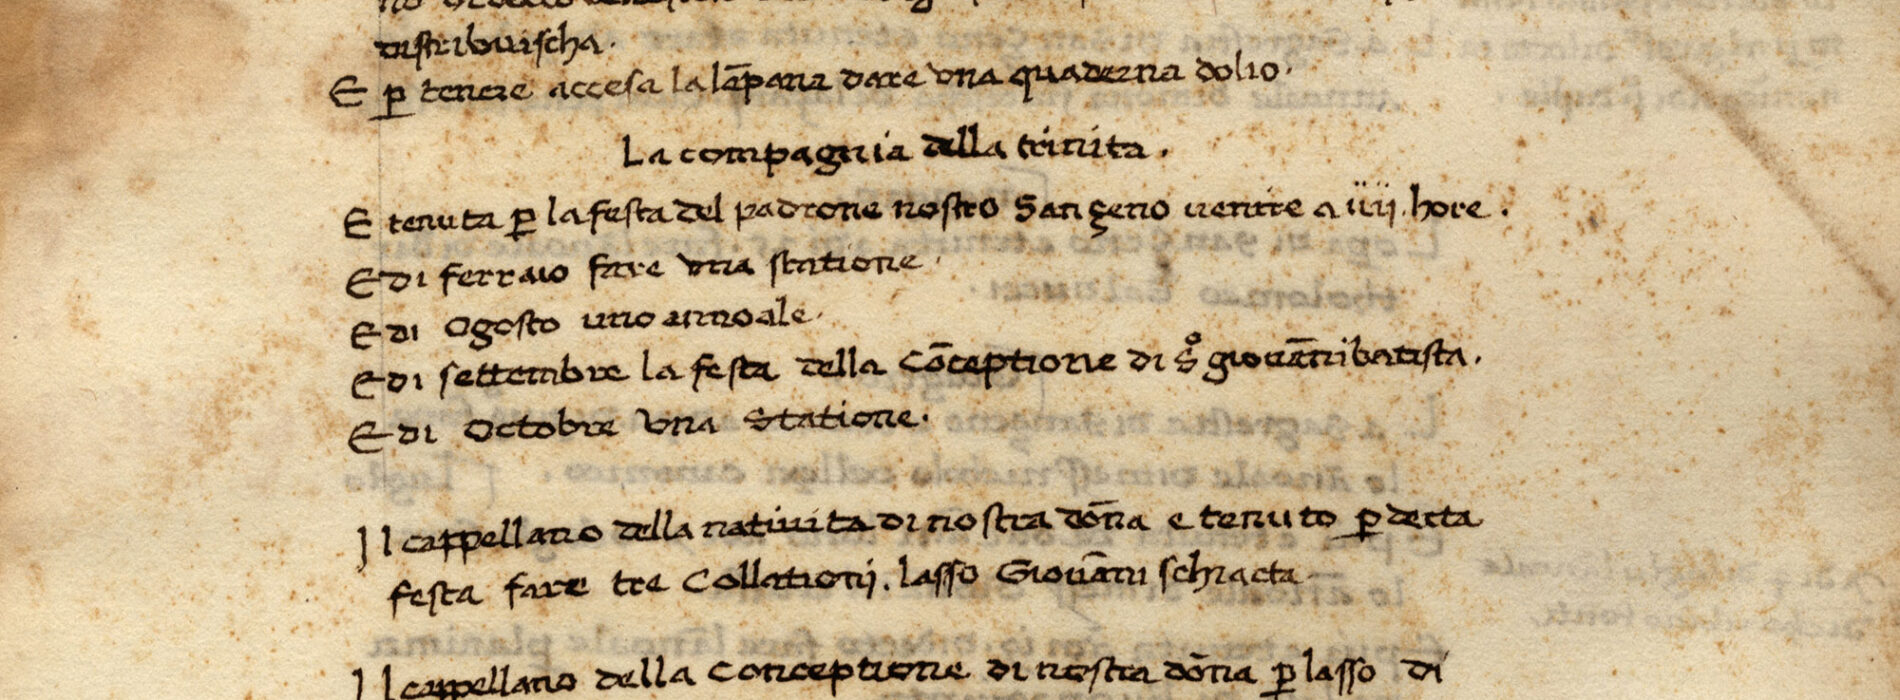 distribuischa.
E p tenere accesa la lēpana dare una quaderna dolio.
La compagnia della trinita.
E tenuta p la festa del padrone nostro San geno venire a iiij. hore.
E di ferraio fare una statione.
E di Ogosto uno annoale.
E di settembre la festa della Cōceptione di Sº giovāni batista.
E di Octobre Una Statione.
Il cappellano della natiuita di nostra dōna e tenuto p decta
festa fare tre Collationj. lasso Giouāni schiacta
Il cappellano della Conceptione di nostra dōna p lasso di